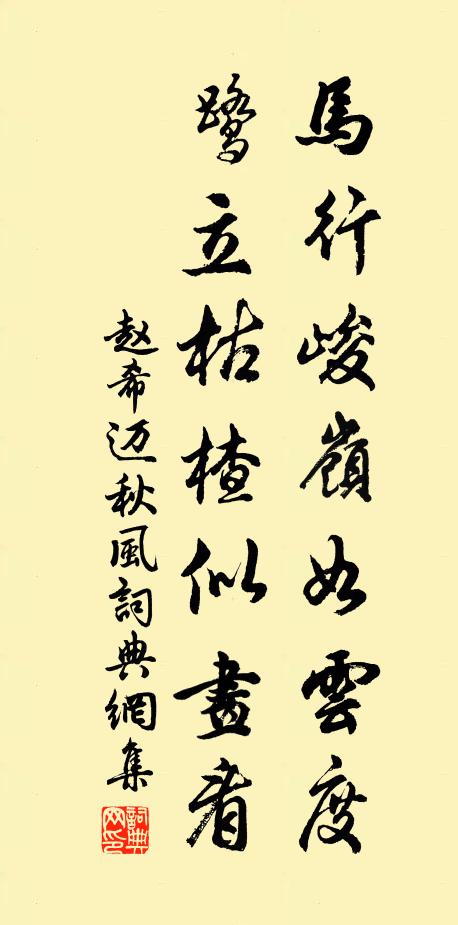 馬行峻嶺如雲度
鷺立枯楂似畫看
赵希迈秋風詞典網集
詞典網印